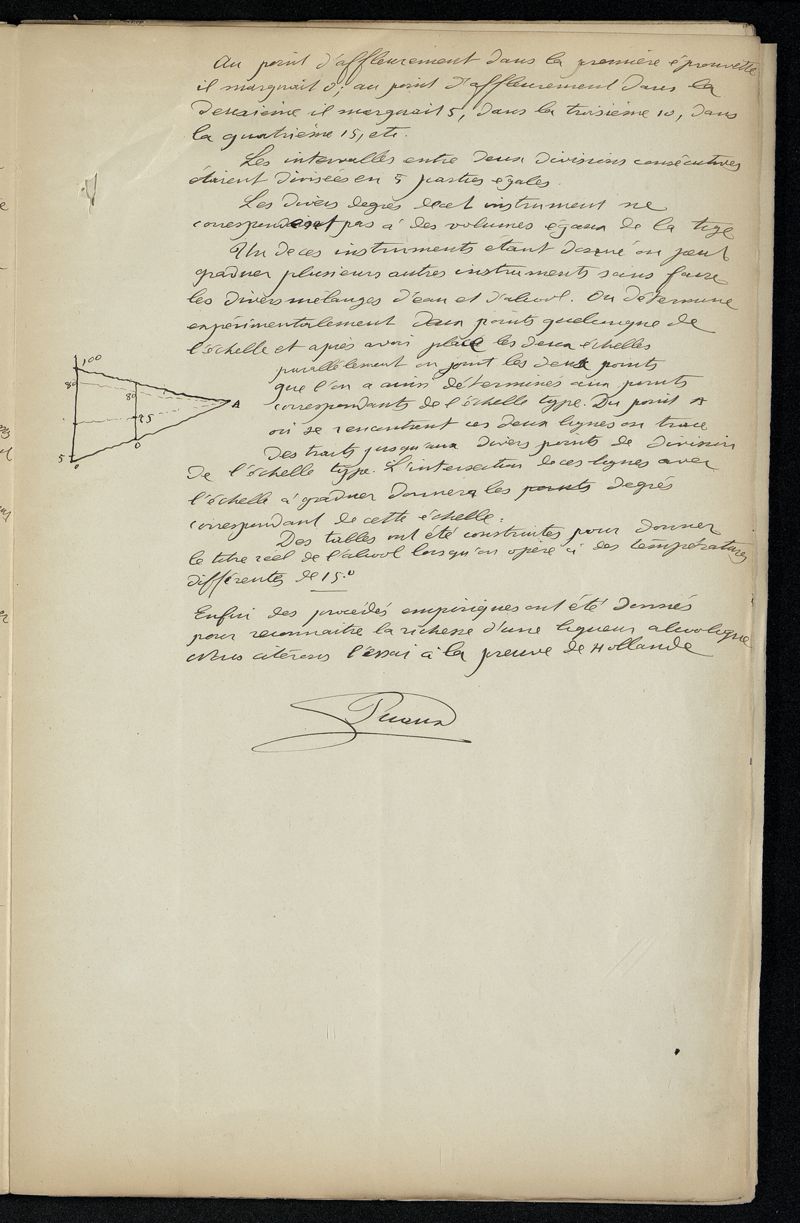 Au point d'affleurement dans la première éprouvette
il marquait 0; au point d'affleurement dans la
deuxième il marquait 5, dans la troisième 10, dans
la quatrième 15, etc.
Les intervalles entre deux divisions consécutives
étaient divisées en 5 parties égales.
Les divers degrés de cet instrument ne
correspondaient pas à des volumes égaux de la tige
Un de ces instruments étant donné on peut
graduer plusieurs autres instruments sans faire
les divers mélanges d'eau et d'alcool. On détermine
expérimentalement deux points quelconque de
l'échelle et après avoir placé les deux échelles
parallèlement on joint les deux points
que l'on a ainsi déterminés aux points
correspondants de l'échelle type. Du point A
où se rencontrent ces deux lignes on trace
des traits jusqu'aux divers points de division
de l'échelle type. L'intersection de ces lignes avec
l'échelle à graduer donnera les points degrés
correspondant de cette échelle.
Des tables ont été construites pour donner
le titre réel de l'alcool lorsqu'on opère à des températures
différentes de 15°
Enfin des procédés empiriques ont été donnés
pour reconnaitre la richesse d'une liqueur alcoolique
Nous citerons l'essai à la preuve de Hollande
100
80
80
A
25
5
0
0